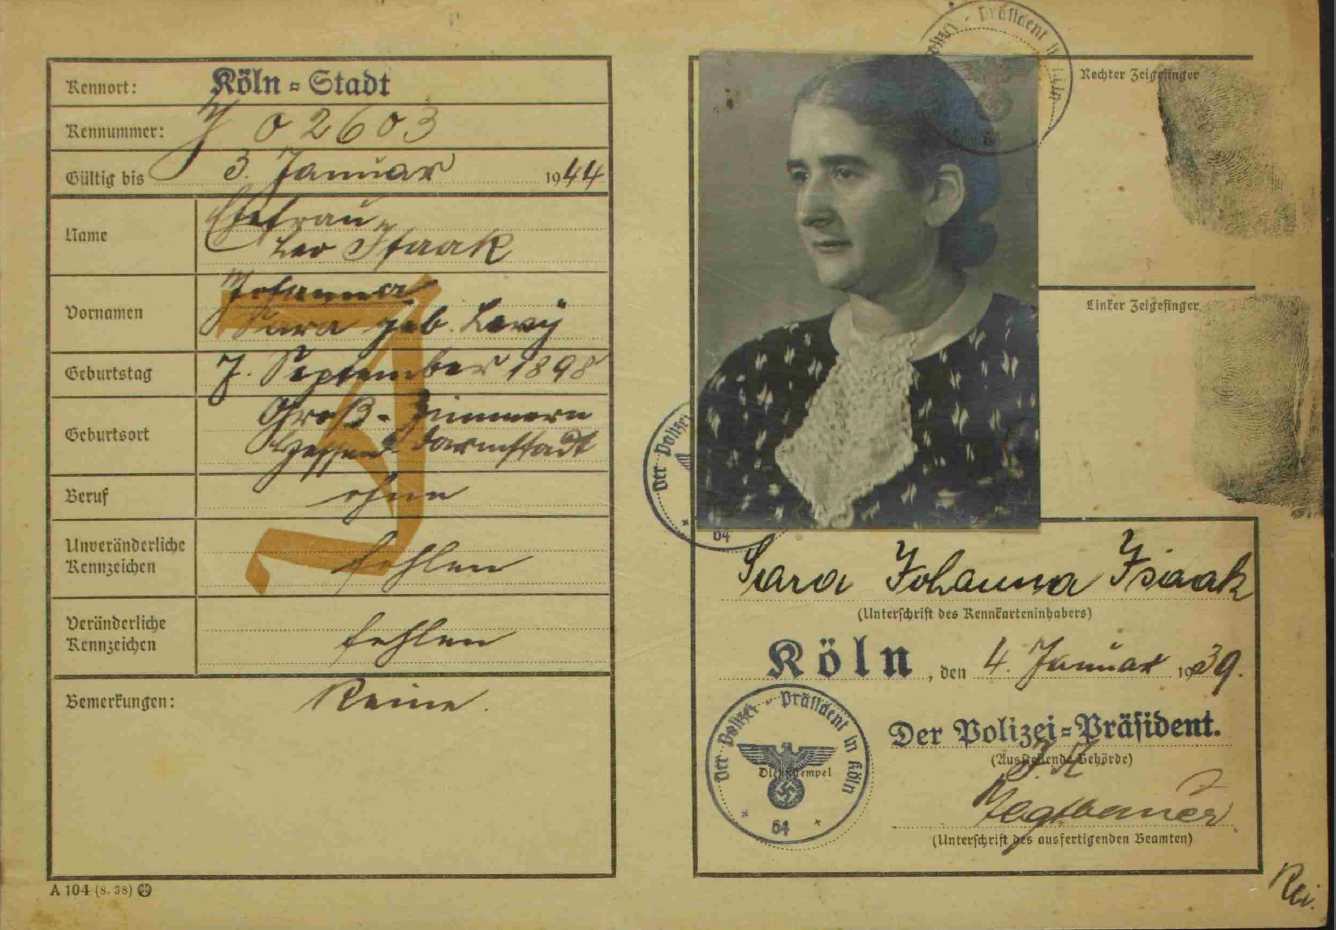 Kennort: Köln-Stadt
Kennummer: J 02603
Gültig bis 3. Januar 1944
Name Ehefrau
Leo Isaak
Vornamen Johanna
Sara geb. Levy
Geburtstag 7. September 1898
Geburtsort Groß-Zimmern
Hessen-Darmstadt
Beruf ohne
Unveränderliche
Kennzeichen fehlen
Veränderliche
Kennzeichen fehlen
Bemerkungen: Keine.
J
A 104 (8. 38)
Der Polizei-Präsident in Köln
Rechter Zeigefinger
Linker Zeigefinger
Der Polizei
64
Sara Johanna Isaak
(Unterschrift des Kennkarteninhabers)
Köln, den 4. Januar 1939.
Der Polizei-Präsident in Köln
Dienststempel
64
Der Polizei-Präsident.
(Ausstellende Behörde)
J. A.
(Unterschrift des ausfertigenden Beamten)
Rei.